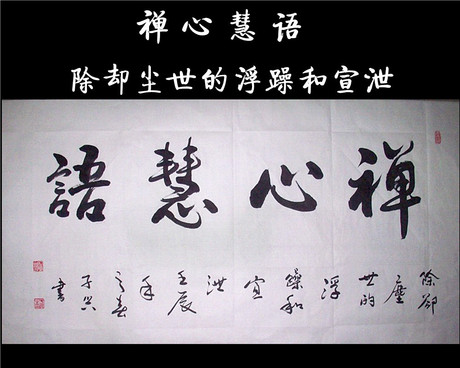 禅心慧语
除却尘世的浮躁和宣泄
禅心慧語
除却塵世的浮躁和宣泄壬辰年之春子兴書